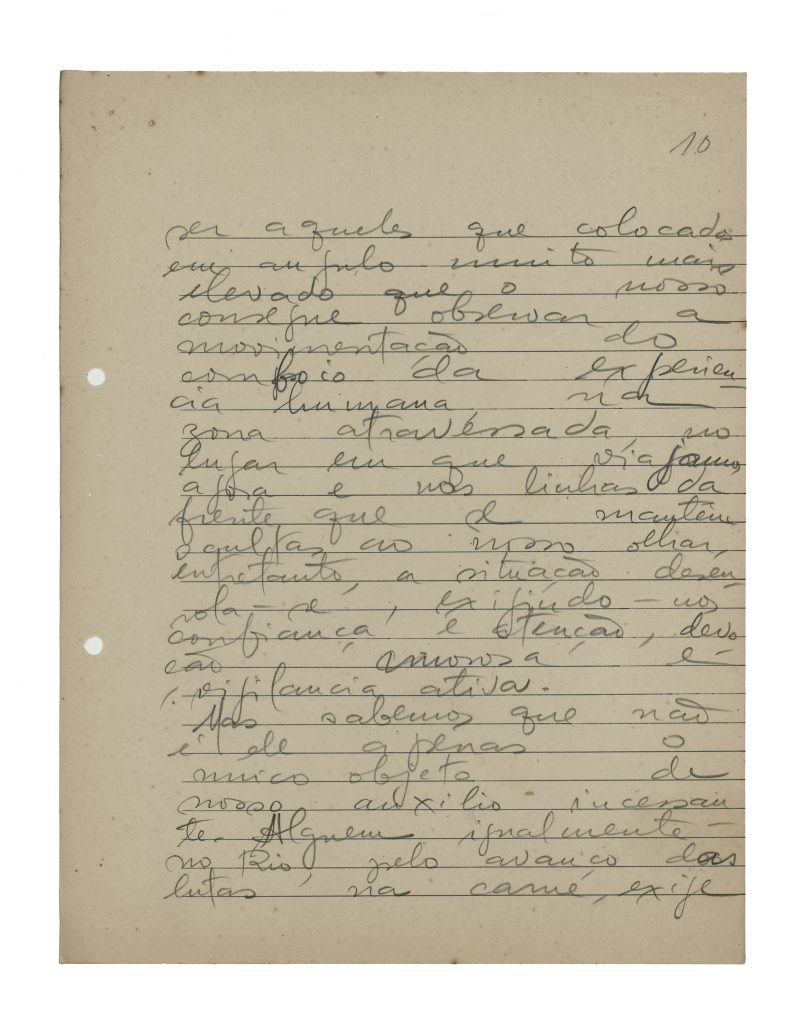 10
ser aqueles que colocado
em angulo muito mais
elevado que o nosso
consegue observar a
movimentação do
comboio da experien-
cia humana, na
zona atravessada, no
lugar em que viajamos
agora e nas linhas da
frente que se mantêm
ocultas ao nosso olhar,
entretanto, a situação desen-
rola-se, exijindo-nos
confiança e atenção, devo
ção amorosa e
vigilancia ativa.
Mas sabemos que não
é ele apenas o
unico objeto de
nosso auxilio incessan-
te. Alguem igualmente
no Rio, pelo avanço das
lutas na carne, exije